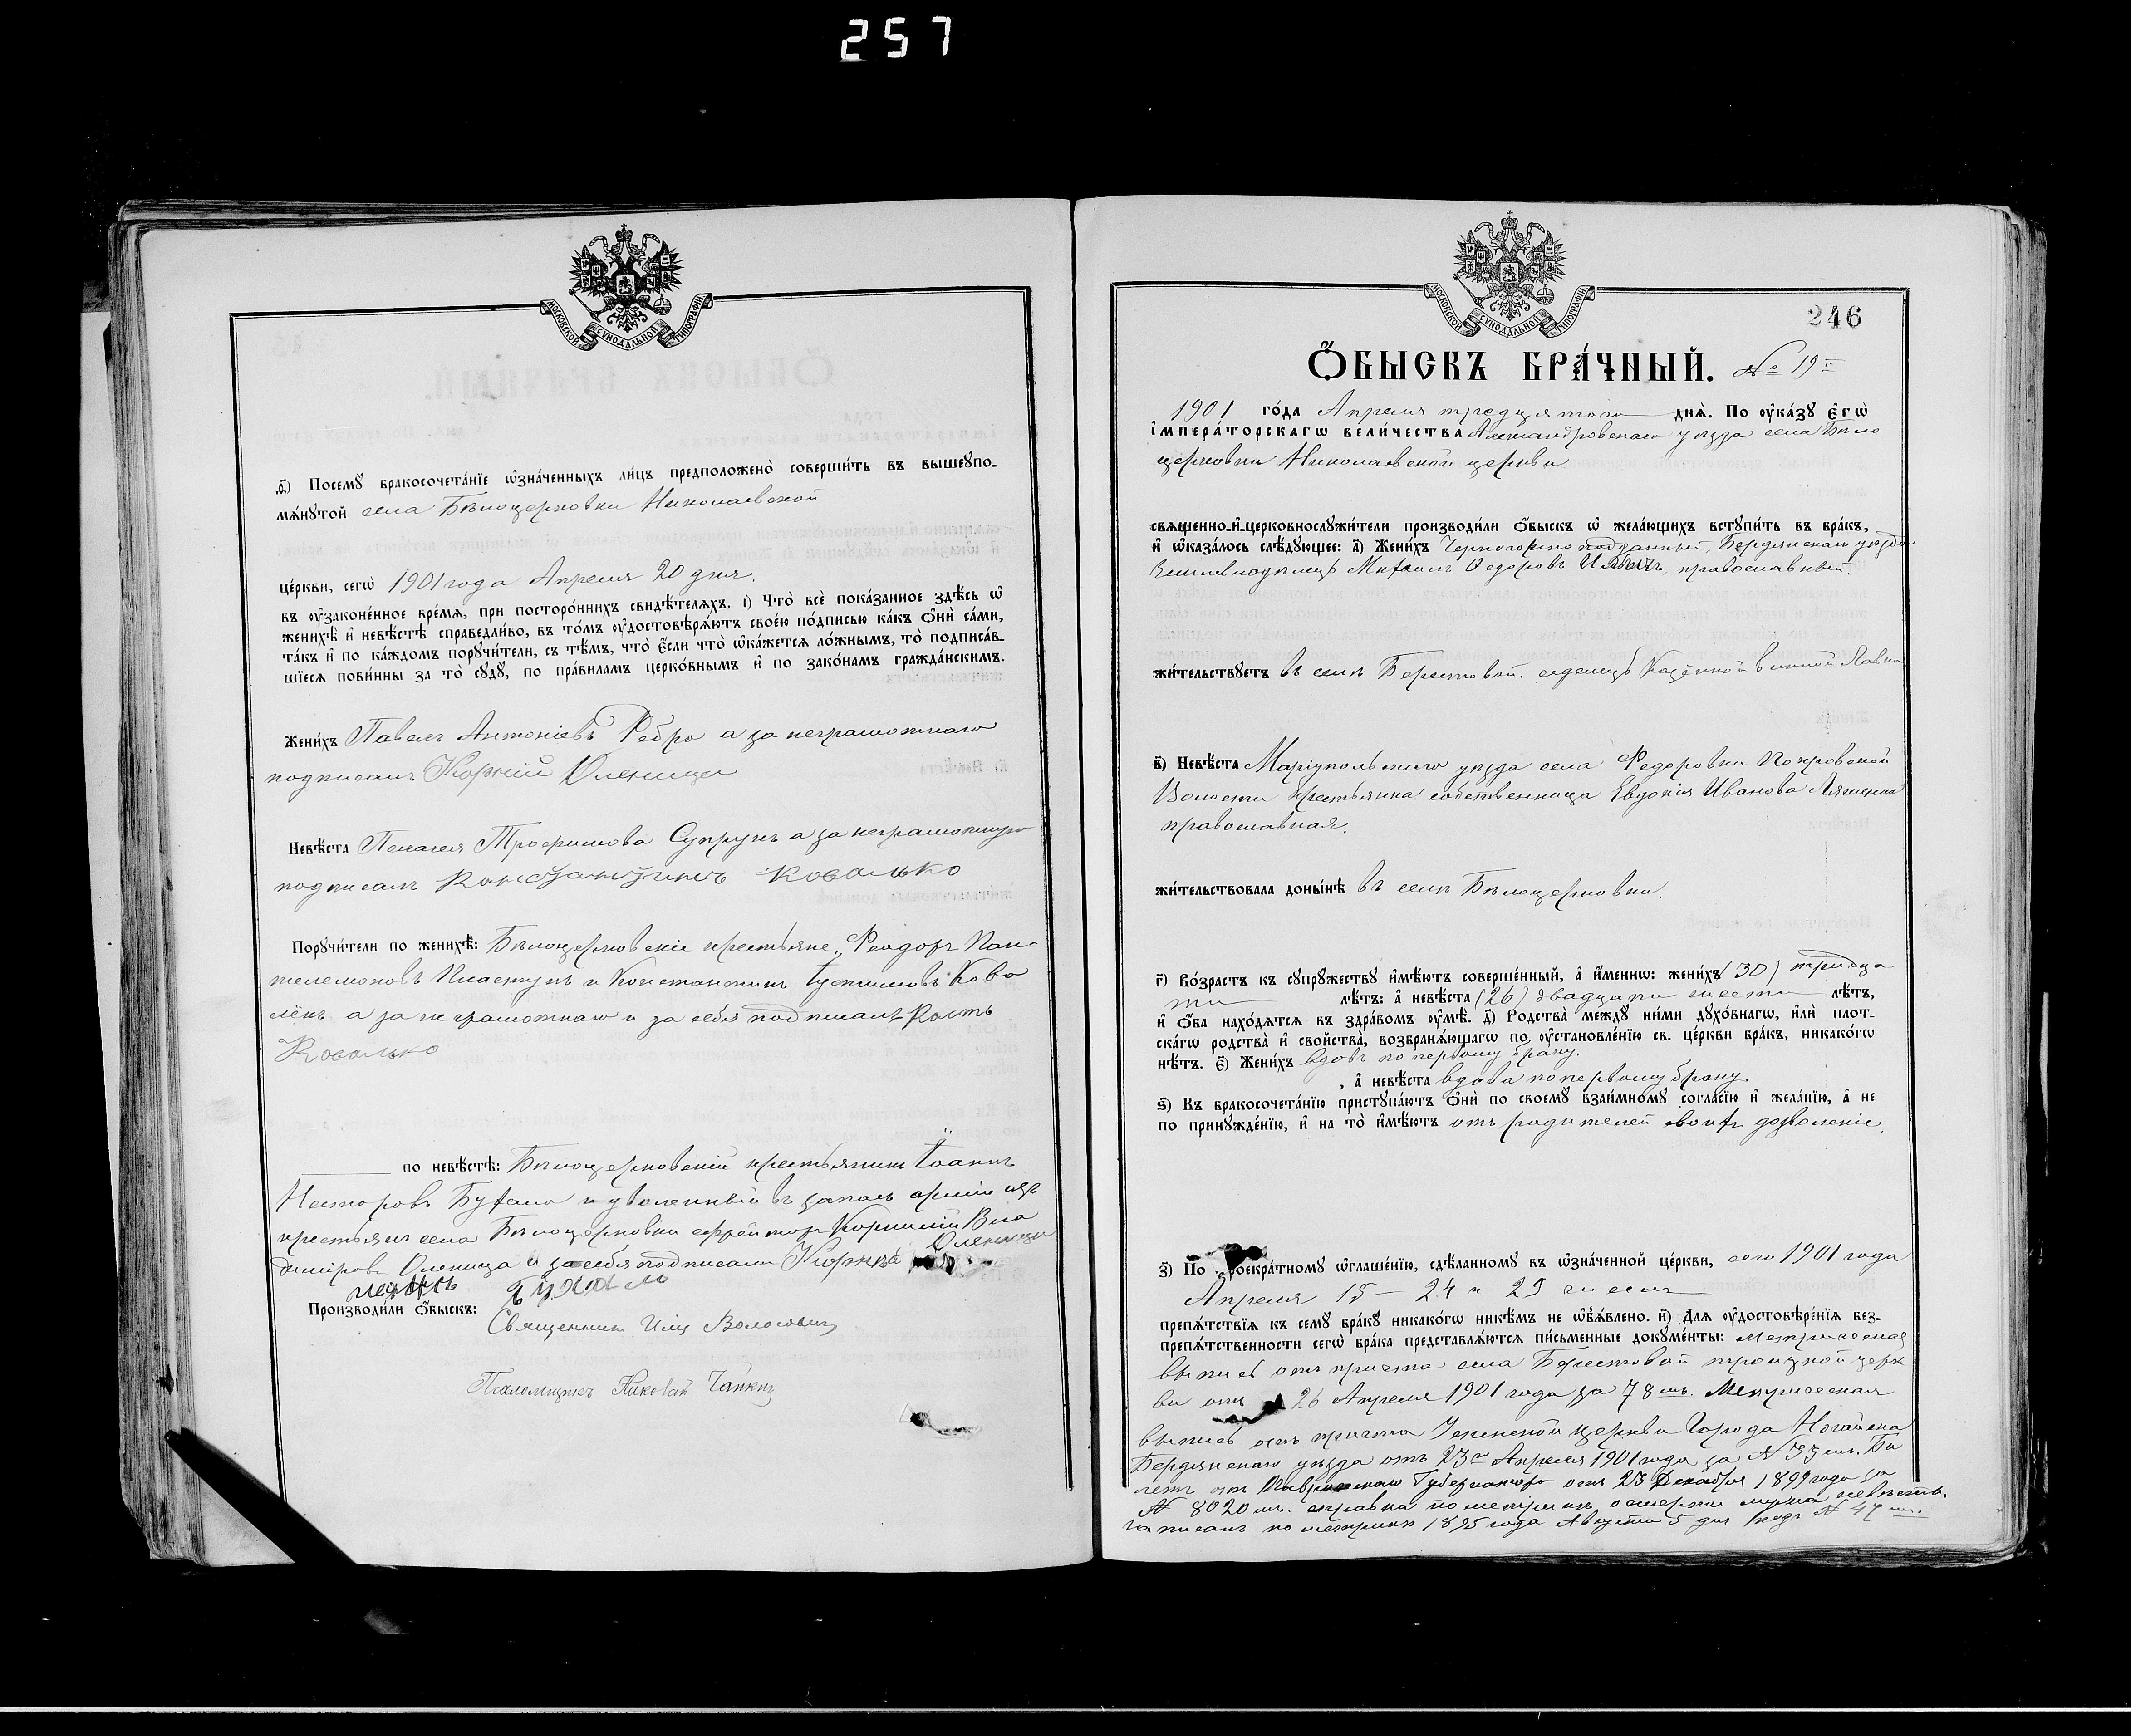 257
МОСКОВСКОЙ СѴНОДАЛЬНОЙ ТИПОГРАФІИ
ѳ) Посемꙋ бракосочетаніе ѡзначенныхъ лицъ предположено совершить въ вышеꙋпо-
мянꙋтой села Бѣлоцерковки Николаевской
церкви, сегѡ 1901 года Апреля 20 дня.
въ оузаконенное время, при постороннихъ свидѣтеляхъ. і) Что все показанное здѣсь ѡ
женихѣ и невѣстѣ справедливо, въ томъ оудостовѣряютъ своею подписью какъ ѻни сами,
такъ и по каждомъ порꙋчители, съ тѣмъ, что если что ѡкажется ложнымъ, то подписав-
шїеся повинны за то сꙋдꙋ, по правиламъ церковнымъ и по законамъ гражданскимъ.
Женихъ Павелъ Антоніевъ Ребро а за неграмотнаго
подписалъ Корній Оленица
Невѣста Пелагея Трофимова Супрунъ а за неграмотную
подписалъ Констянтинъ Ковалько
Порꙋчители по женихѣ: Бѣлоцерковскіе крестьяне, Феодоръ Пан-
телемоновъ Пластунъ и Константинъ Ков
а за неграмотнаго и за себя подписалъ Кость
Ковалько
по невѣстѣ: Бѣлоцерковскій крестьянинъ Іоаннъ
Несторовъ Бухало и уволенный въ запасъ арміи изъ
крестьянъ села Бѣлоцерковки ефрейторъ Корнилій Вла
диміровъ Оленица и за себя подписали Корній Оленица
Бухало
Производили ѻбыскъ:
Священникъ Илія Волосевичъ
Псаломщикъ Николай
МОСКОВСКОЙ СѴНОДАЛЬНОЙ ТИПОГРАФІИ
246
ѺБЫСКЪ БРАЧНЫЙ. № 19й
1901 года Апреля тредцятого дня. По оуказꙋ Егѡ
Императорскагѡ Величества Александровскаго уѣзда села Бѣло
церковки Николаевской церкви
священно-и-церковнослꙋжители производили ѻбыскъ ѡ желающихъ встꙋпить въ бракъ,
и ѡказалось слѣдꙋющее: а) Женихъ Черногорско подданный, Бердянскаго уѣзда
Землевладѣлецъ Михаилъ Федоровъ православный.
жительствꙋетъ въ селѣ Берестовой. сиделецъ Казённой винной Лавки
в) Невѣста Маріупольскаго уѣзда села Федоровки Покровской
Волости крестьянка собственница Евдокія Иванова Ляшенко
православная.
жительствовала донынѣ въ селѣ Бѣлоцерковки.
г) Возрастъ къ сꙋпрꙋжествꙋ имѣютъ совершенный, а именнѡ: женихъ (30) тридца
ти лѣтъ: а невѣста (26) двадцати шести лѣтъ,
и ѻба находятся въ здравомъ оумѣ. д) Родства междꙋ ними дꙋховнагѡ, или плот-
скагѡ родства и свойства, возбраняющагѡ по оустановленїю св. церкви бракъ, никакогѡ
нѣтъ. е) Женихъ вдовъ по первому браку.
, а невѣста вдова по первому браку.
ѕ) Къ бракосочетанїю пристꙋпаютъ ѻни по своемꙋ взаимномꙋ согласїю и желанїю, а не
по принꙋжденїю, и на то имѣютъ отъ родителей своихъ дозволеніе.
з) По троекратномꙋ ѡглашенїю, сдѣланномꙋ въ ѡзначенной церкви, сего 1901 года
Апреля 15 – 24 и 29 чиселъ
препятствїя къ семꙋ бракꙋ никакогѡ никѣмъ не ѡбъявлено. и) Для оудостовѣренїя без-
препятственности сегѡ брака представляются письменные докꙋменты: Метрическая
выпись отъ причта села Берестовой троицкой церк
ви отъ 26 Апреля 1901 года за 78 шт. Метрическая
выпись отъ причта Успенской церкви Города Ногайска
Бердянскаго уѣзда отъ 23го Апреля 1901 года за № 33 шт. Би
летъ отъ Таврическаго Губернатора отъ 23 Декабря 1899 года за
№ 8020 шт. справка по метрикѣ о смерти мужа невѣсты.
записанъ по метрики 1895 года Августа 5 дня подъ № 47 шт.